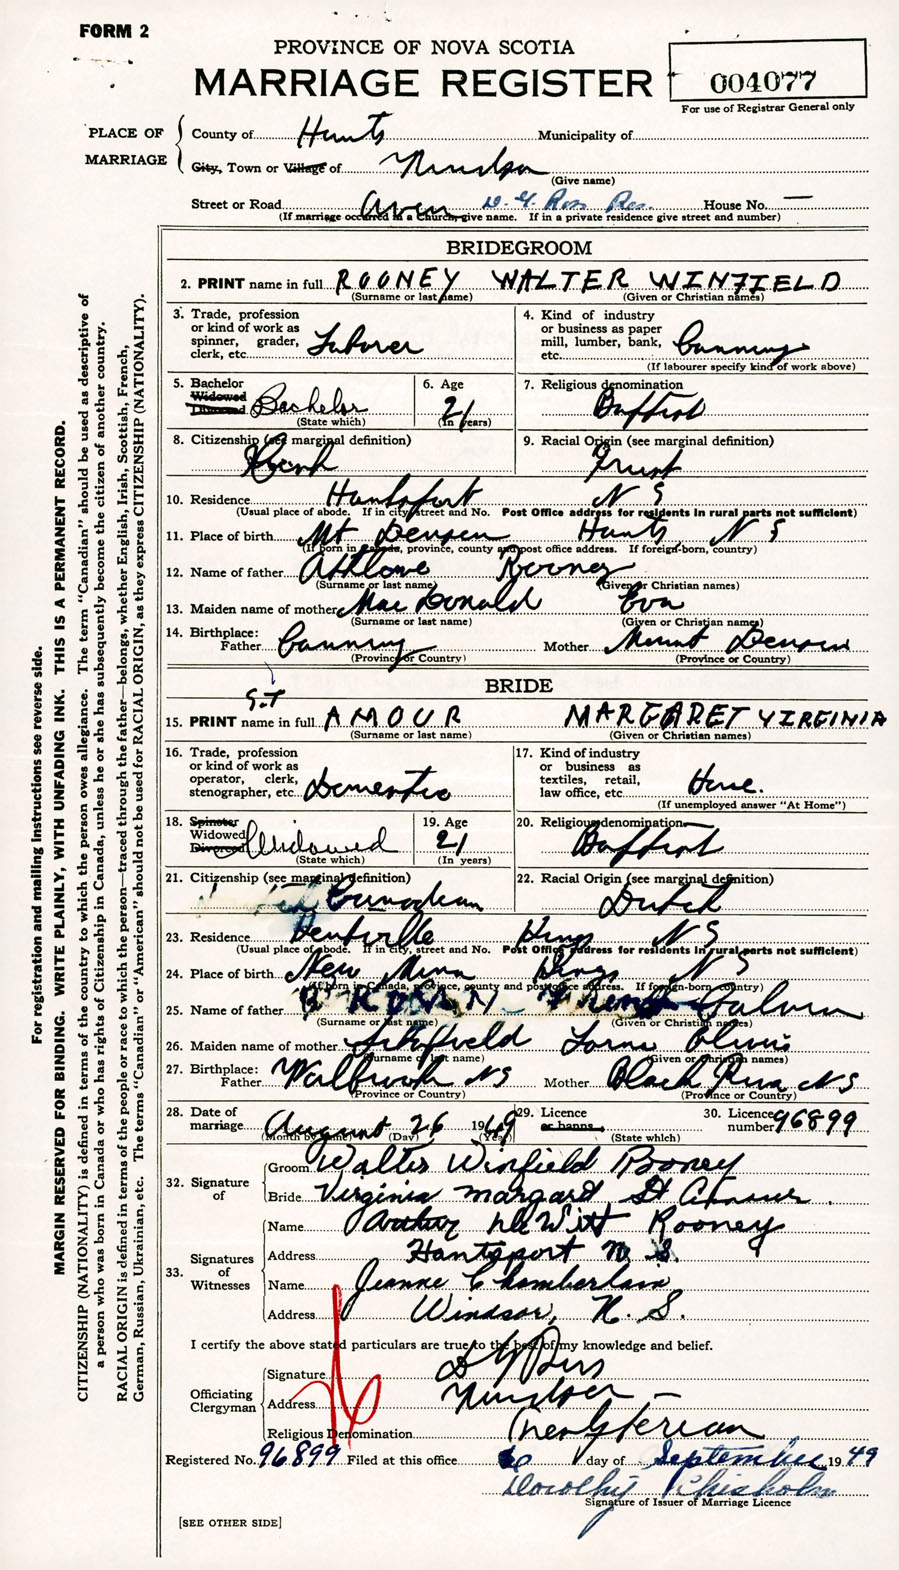 FORM 2
PROVINCE OF NOVA SCOTIA
MARRIAGE REGISTER
004077
For use of Registrar General only
PLACE OF MARRIAGE
County of Hants Municipality of
City, Town or Village of Windsor
(Give name)
Street or Road Avon D. G. Ross Res. House No. —
(If marriage occurred in a Church, give name. If in a private residence give street and number)
BRIDEGROOM
2. PRINT name in full ROONEY WALTER WINFIELD
(Surname or last name) (Given or Christian names)
3. Trade, profession or kind of work as spinner, grader, clerk, etc. Laborer
4. Kind of industry or business as paper mill, lumber, bank, etc. Canning
(If labourer specify kind of work above)
5. Bachelor Widowed Divorced Bachelor
(State which)
6. Age 21
(In years)
7. Religious denomination Baptist
8. Citizenship (see marginal definition)
9. Racial Origin (see marginal definition)
10. Residence Hantsport N S
(Usual place of abode. If in city, street and No. Post Office address for residents in rural parts not sufficient)
11. Place of birth Mt Denson Hants N S
(If born in Canada, province, county and post office address. If foreign-born, country)
12. Name of father Rooney
(Surname or last name) (Given or Christian names)
13. Maiden name of mother MacDonald Eva
(Surname or last name) (Given or Christian names)
14. Birthplace: Father Canning Mother Mount Denson
(Province or Country) (Province or Country)
BRIDE
S.T
15. PRINT name in full AMOUR MARGARET VIRGINIA
(Surname or last name) (Given or Christian names)
16. Trade, profession or kind of work as operator, clerk, stenographer, etc. Domestic
17. Kind of industry or business as textiles, retail, law office, etc. Home.
(If unemployed answer "At Home")
18. Spinster Widowed Divorced Widowed
(State which)
19. Age 21
(In years)
20. Religious denomination Baptist
21. Citizenship (see marginal definition) Canadian
22. Racial Origin (see marginal definition) Dutch
23. Residence Kentville Kings N S
(Usual place of abode. If in city, street and No. Post Office address for residents in rural parts not sufficient)
24. Place of birth New Minas Kings N S
(If born in Canada, province, county and post office address. If foreign-born, country)
25. Name of father Calvin
(Surname or last name) (Given or Christian names)
26. Maiden name of mother Lorna
(Surname or last name) (Given or Christian names)
27. Birthplace: Father Wallbrook NS Mother Black River NS
(Province or Country) (Province or Country)
28. Date of marriage August 26 1949
(Month by name) (Day) (Year)
29. Licence or banns
(State which)
30. Licence number 96899
32. Signature of
Groom Walter Winfield Rooney
Bride Virginia Margaret St Amour.
33. Signatures of Witnesses
Name Arthur DeWitt Rooney
Address Hantsport N.S.
Name Jeanne Chamberlain
Address Windsor, N. S.
I certify the above stated particulars are true to the best of my knowledge and belief.
Officiating Clergyman
Signature D G Ross
Address Windsor —
Religious Denomination Presbyterian
Registered No. 96899 Filed at this office day of September 1949
Dorothy Chisholm
Signature of Issuer of Marriage Licence
[SEE OTHER SIDE]
For registration and mailing instructions see reverse side.
MARGIN RESERVED FOR BINDING. WRITE PLAINLY, WITH UNFADING INK. THIS IS A PERMANENT RECORD.
CITIZENSHIP (NATIONALITY) is defined in terms of the country to which the person owes allegiance. The term "Canadian" should be used as descriptive of
a person who was born in Canada or who has rights of Citizenship in Canada, unless he or she has subsequently become the citizen of another country.
RACIAL ORIGIN is defined in terms of the people or race to which the person—traced through the father—belongs, whether English, Irish, Scottish, French,
German, Russian, Ukrainian, etc. The terms "Canadian" or "American" should not be used for RACIAL ORIGIN, as they express CITIZENSHIP (NATIONALITY).